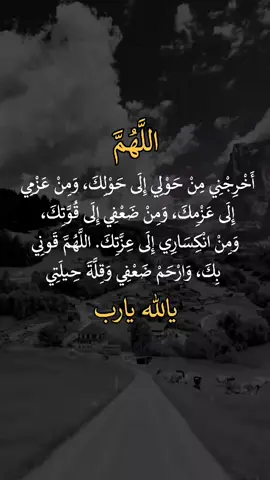 اللَّهُمَّ
أَخْرِجْنِي مِنْ حَوْلِي إِلَى حَوْلِكَ، وَمِنْ عَزْمِي
إِلَى عَزْمِكَ، وَمِنْ ضَعْفِي إِلَى قُوَّتِكَ،
وَمِنْ انْكِسَارِي إِلَى عِزَّتِكَ. اللَّهُمَّ قَوِنِي
بِكَ، وَارْحَمْ ضَعْفِي وَقِلَّةَ حِيلَتِي
ياالله يارب